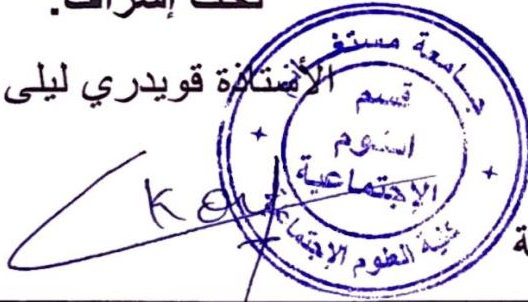 تحت إشراف:
الأستاذة قويدري ليلى
جامعة مستغـ
قسم
العلوم
الإجتماعية
كلية العلوم الاجتما
ـة